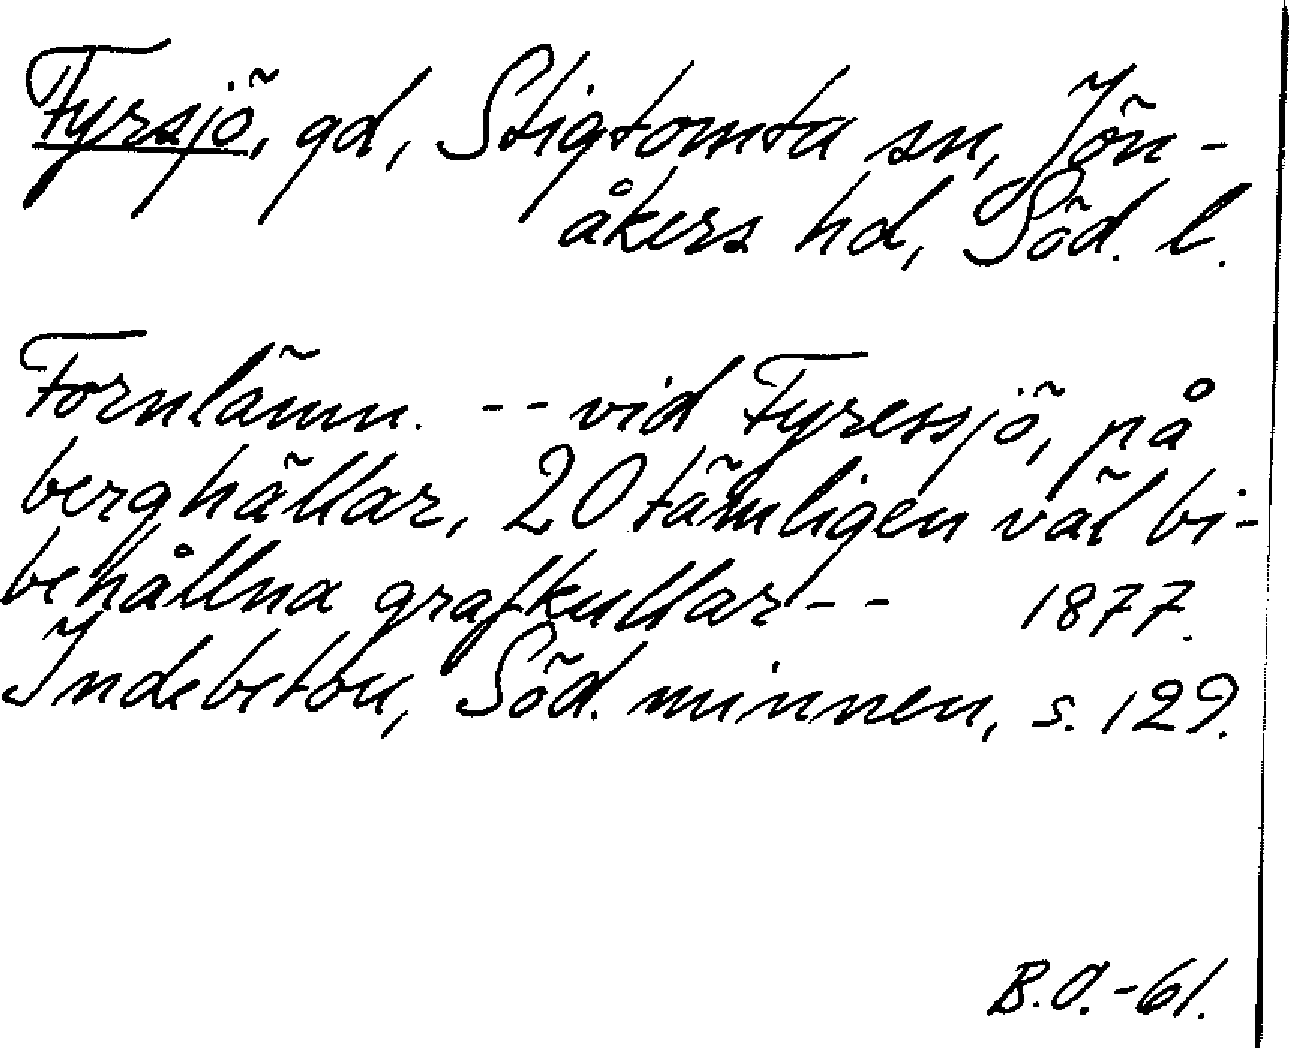 Fyrsjö, gd, Stigtomta sn, Jön-
åkers hd, Söd. l.
Fornlämn. -- vid Fyressjö, på
berghällar, 20 tämligen väl bi-
behållna grafkullar -- 1877.
Indebetou, Söd. minnen, s. 129.
B.O.-61.